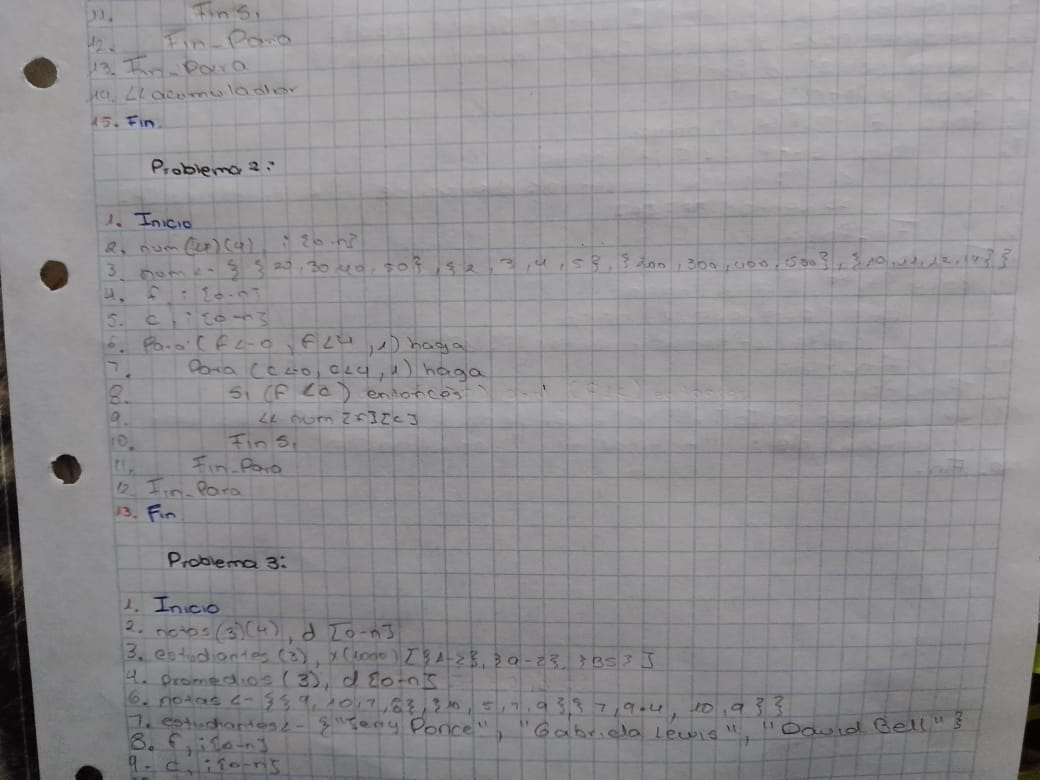 11. Fin Si
12. Fin-Para
13. Fin-Para
14. << acomulador
15. Fin.
Problema 2:
1. Inicio
2. num(4)(4), i [0-n]
3. num <- { { 20, 30, 40, 50}, {2, 3, 4, 5}, {200, 300, 400, 500}, {10, 11, 12, 14} }
4. f, i [0-n]
5. c, i [0-n]
6. Para (f <- 0, f<4, 1) haga
7. Para (c <- 0, c<4, 1) haga
8. Si (f < c) entonces
9. << num [f][c]
10. Fin Si
11. Fin-Para
12. Fin-Para
13. Fin
Problema 3:
1. Inicio
2. notas(3)(4), d [0-n]
3. estudiantes(3), x(1000) [{A-Z}, {a-z}, {BS}]
4. promedios (3), d[0-n]
6. notas <- { { 9, 10, 7, 8}, {10, 5, 7, 9} { 7, 9.4, 10, 9 } }
7. estudiantes <- {"Jeny Ponce", "Gabriela Lewis", "David Bell"}
8. f, i [0-n]
9. c, i [0-n]